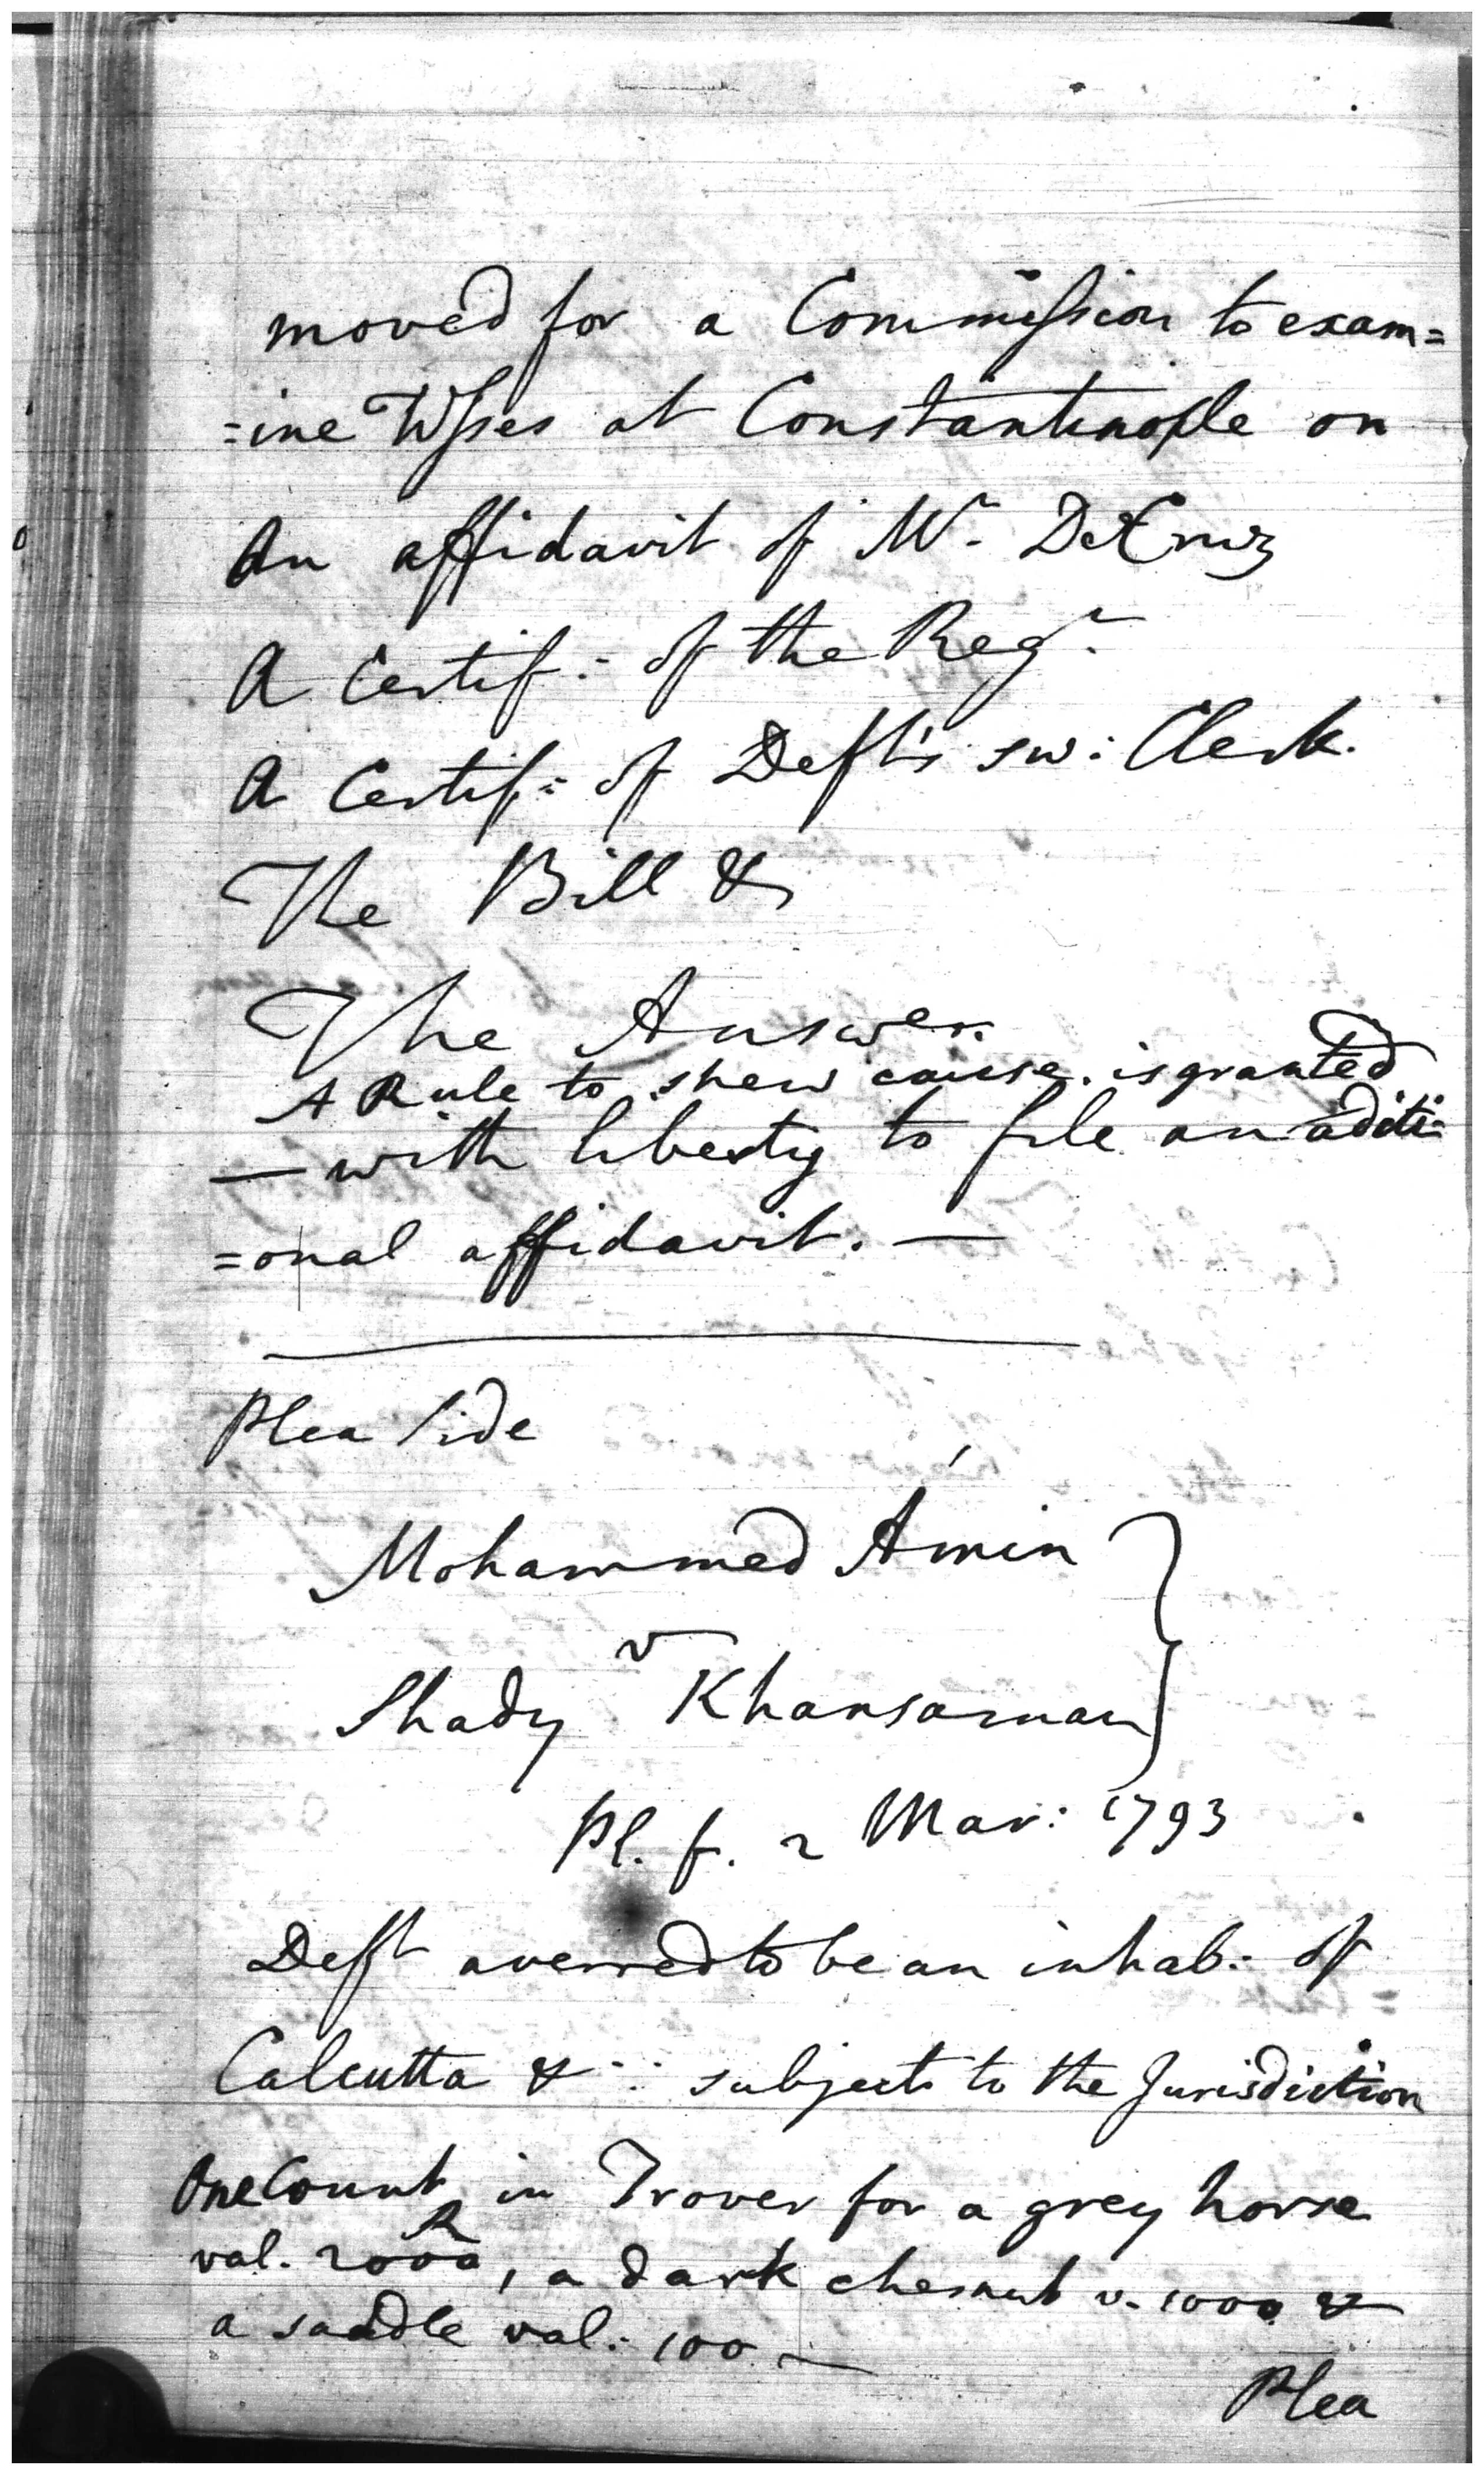 moved for a Commission to exam=
=ine Wsses at Constantinople on
An affidavit of Mr. DeCruz
A Certif: of the Regr.
A Certif: of Deft's sw: Clerk.
The Bill &
The Answer.
A Rule to shew cause is granted
— with liberty to file an additi=
=onal affidavit. —
Plea Side
Mohammed Amin
v
Shady Khansaman
Pl. f. 2 Mar: 1793
Deft averred to be an inhab: of
Calcutta & : : subject to the Jurisdiction
One Count in Trover for a grey horse
R
val. 2000, a dark chesnut v. 1000 &
a saddle val: 100 —
Plea